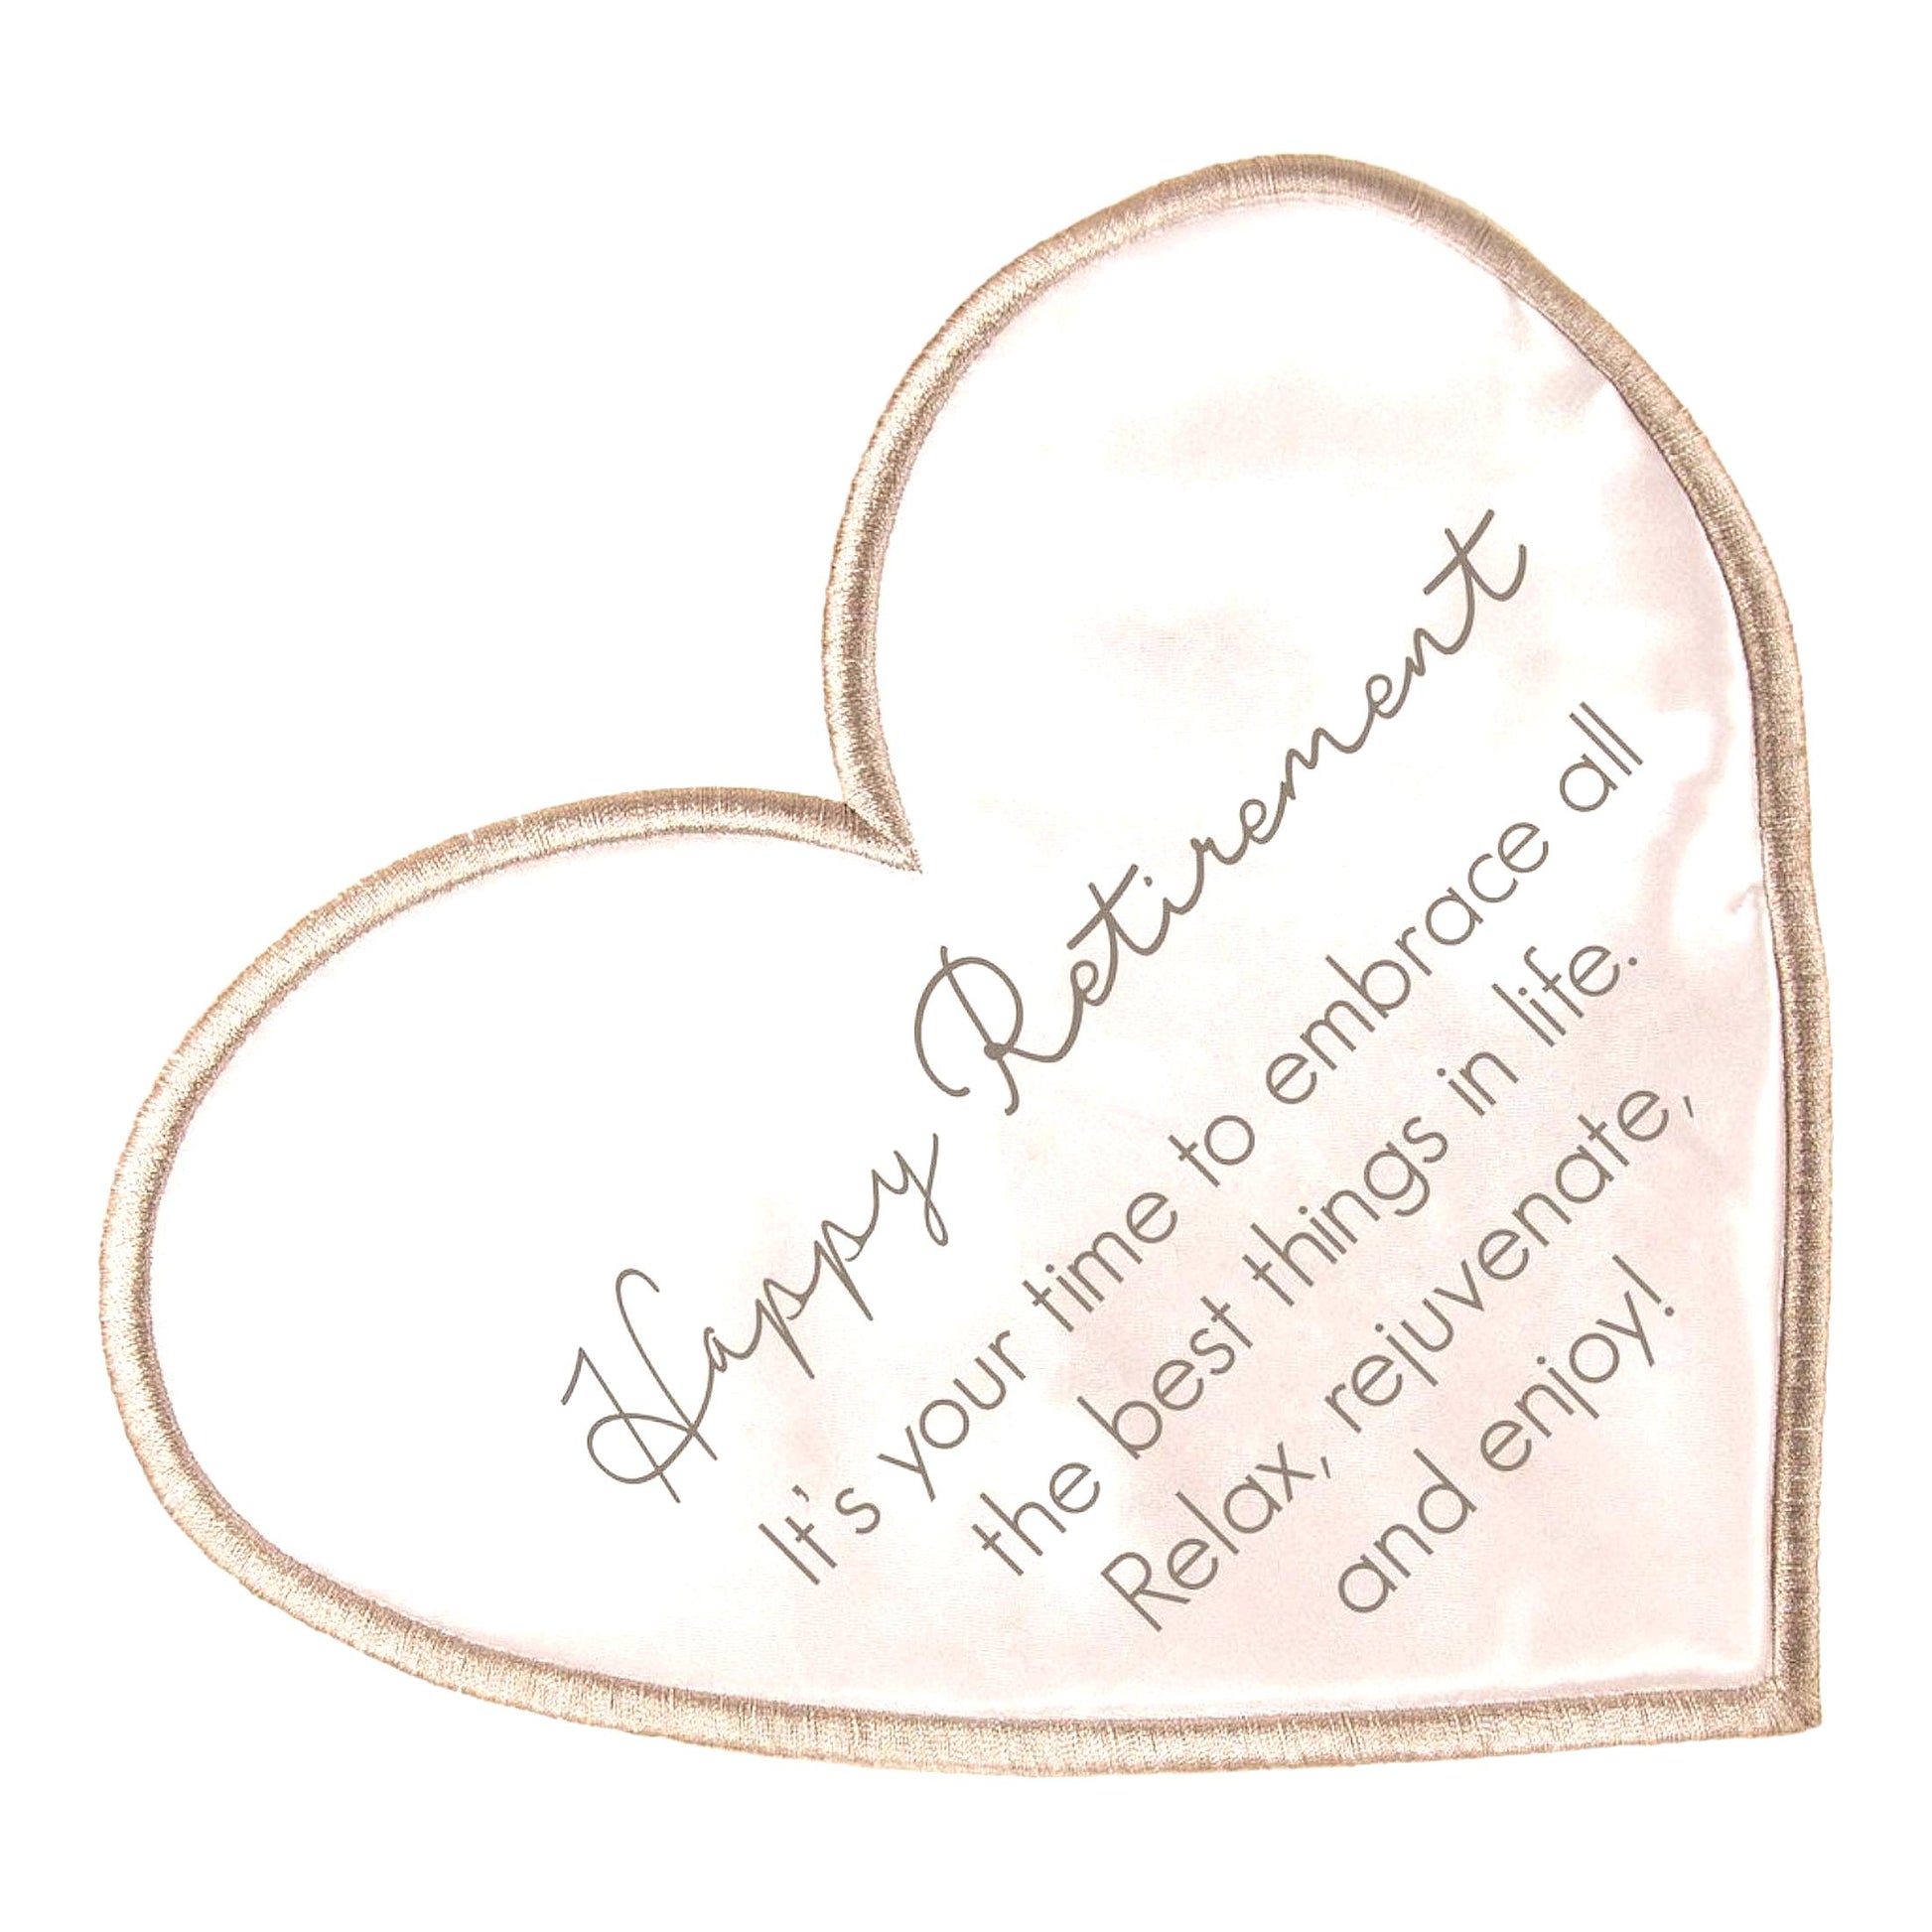 Happy Retirement
It's your time to embrace all
the best things in life.
Relax, rejuvenate,
and enjoy!